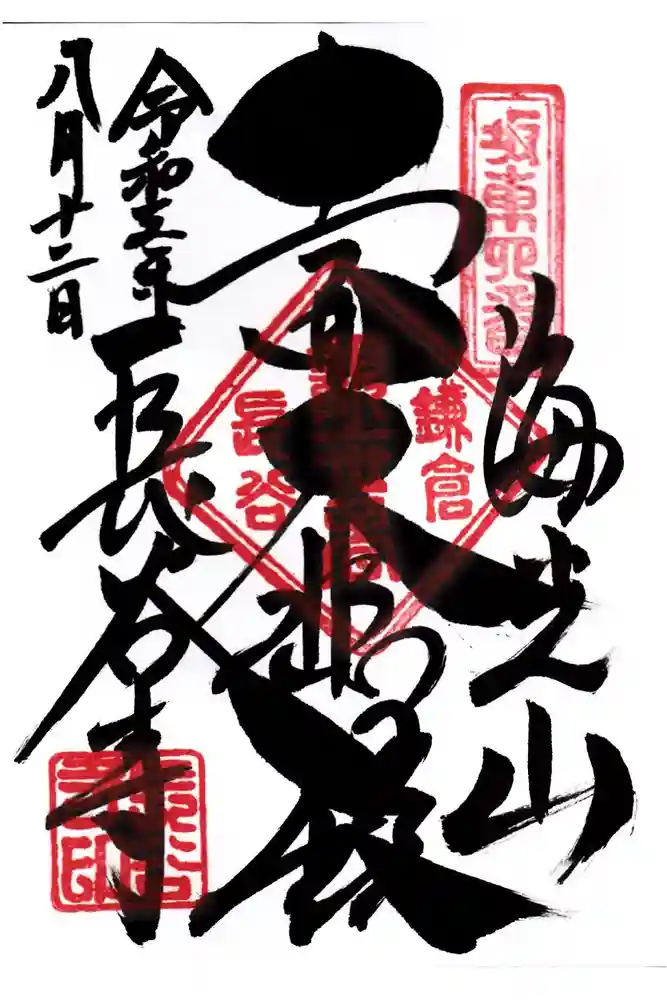 坂東四番
海光山
大悲殿
鎌倉
長谷
長谷寺
令和三年
八月十二日